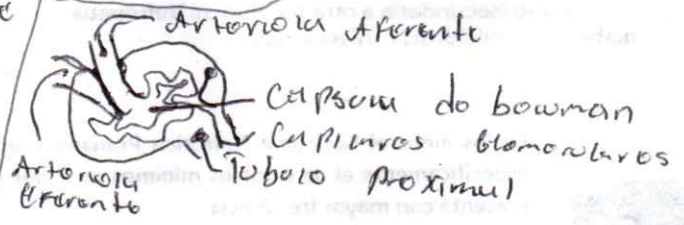 Arteriola Aferente
Capsula de bowman
Capilares Glomerulares
Tubulo Proximal
Arteriola
Eferente